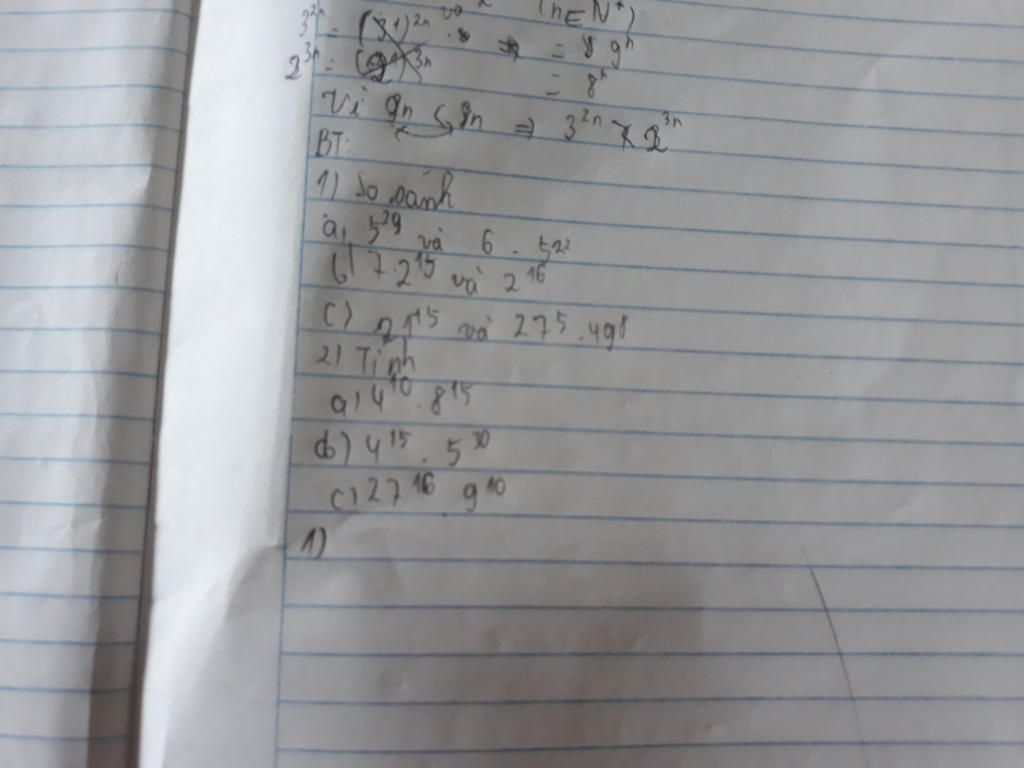 và 2 (n ∈ N*)
3²ⁿ = (3¹)²ⁿ = 9ⁿ
2³ⁿ = ( )³ⁿ = 8ⁿ
Vì 9n 8n ⇒ 3²ⁿ 2³ⁿ
BT:
1) So sánh
a, 5²⁹ và 6 . 5²²
b) 7.2¹⁵ và 2¹⁶
c) 21¹⁵ và 27⁵ . 49⁸
2) Tính
a) 4¹⁰ . 8¹⁵
b) 4¹⁵ . 5³⁰
c) 27¹⁶ . 9¹⁰
1)